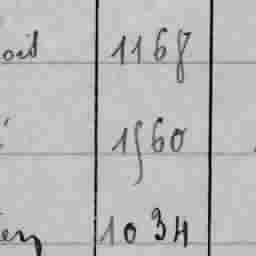 oit 1168
1560
en 1034